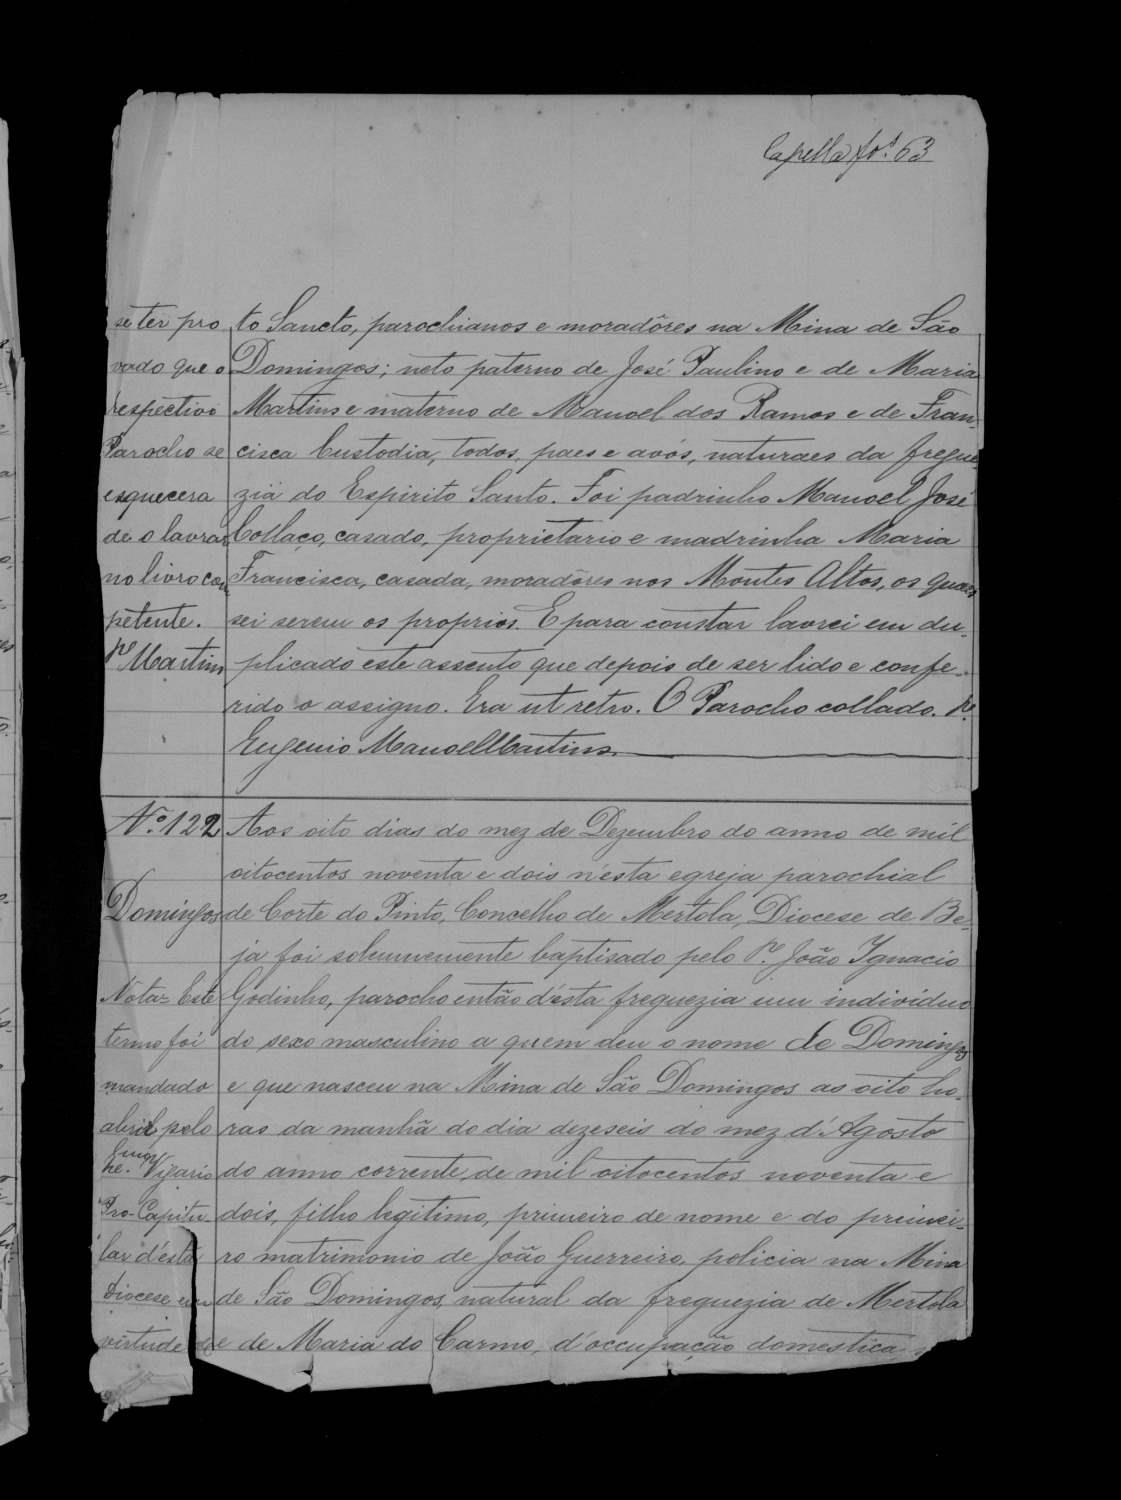 Capella fos. 63
se ter pro
vado que o
respectivo
Parocho se
esquecera
de o lavrar
no livro com
petente.
Pe Martins
to Sancto, parochianos e moradôres na Mina de São
Domingos; neto paterno de José Paulino e de Maria
Martins e materno de Manoel dos Ramos e de Fran-
cisca Custodia, todos, paes e avós, naturaes da fregue-
zia do Espirito Santo. Foi padrinho Manoel José
Collaço, casado, proprietario e madrinha Maria
Francisca, casada, moradôres nos Montes Altos, os quaes
sei serem os proprios. E para constar lavrei em du-
plicado este assento que depois de ser lido e confe-
rido o assigno. Era ut retro. O Parocho collado. Pe.
Eugenio Manoel Martins.
No. 122
Domingos
Nota= Este
termo foi
mandado
abrir pelo
Exmo.
Vigario
Pro-Capitu-
lar d'esta
Diocese em
virtude de
Aos oito dias do mez de Dezembro do anno de mil
oitocentos noventa e dois n'esta egreja parochial
de Corte do Pinto, Concelho de Mertola, Diocese de Be-
ja foi solemnemente baptisado pelo Pe. João Ignacio
Godinho, parocho então d'esta freguezia um individuo
do sexo masculino a quem deu o nome de Domingos
e que nasceu na Mina de São Domingos as oito ho-
ras da manhã do dia dezeseis do mez d'Agosto
do anno corrente de mil oitocentos noventa e
dois, filho legitimo, primeiro de nome e do primei-
ro matrimonio de João Guerreiro, policia na Mina
de São Domingos, natural da freguezia de Mertola
e de Maria do Carmo, d'occupação domestica,